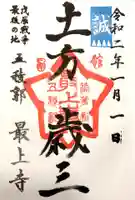 令和二年一月一日
誠
土方歳三
戊辰戦争
最後の地
五稜郭
最上寺